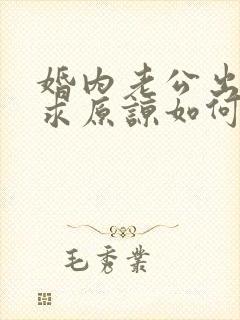 婚内老公出
求原谅如何
毛秀業